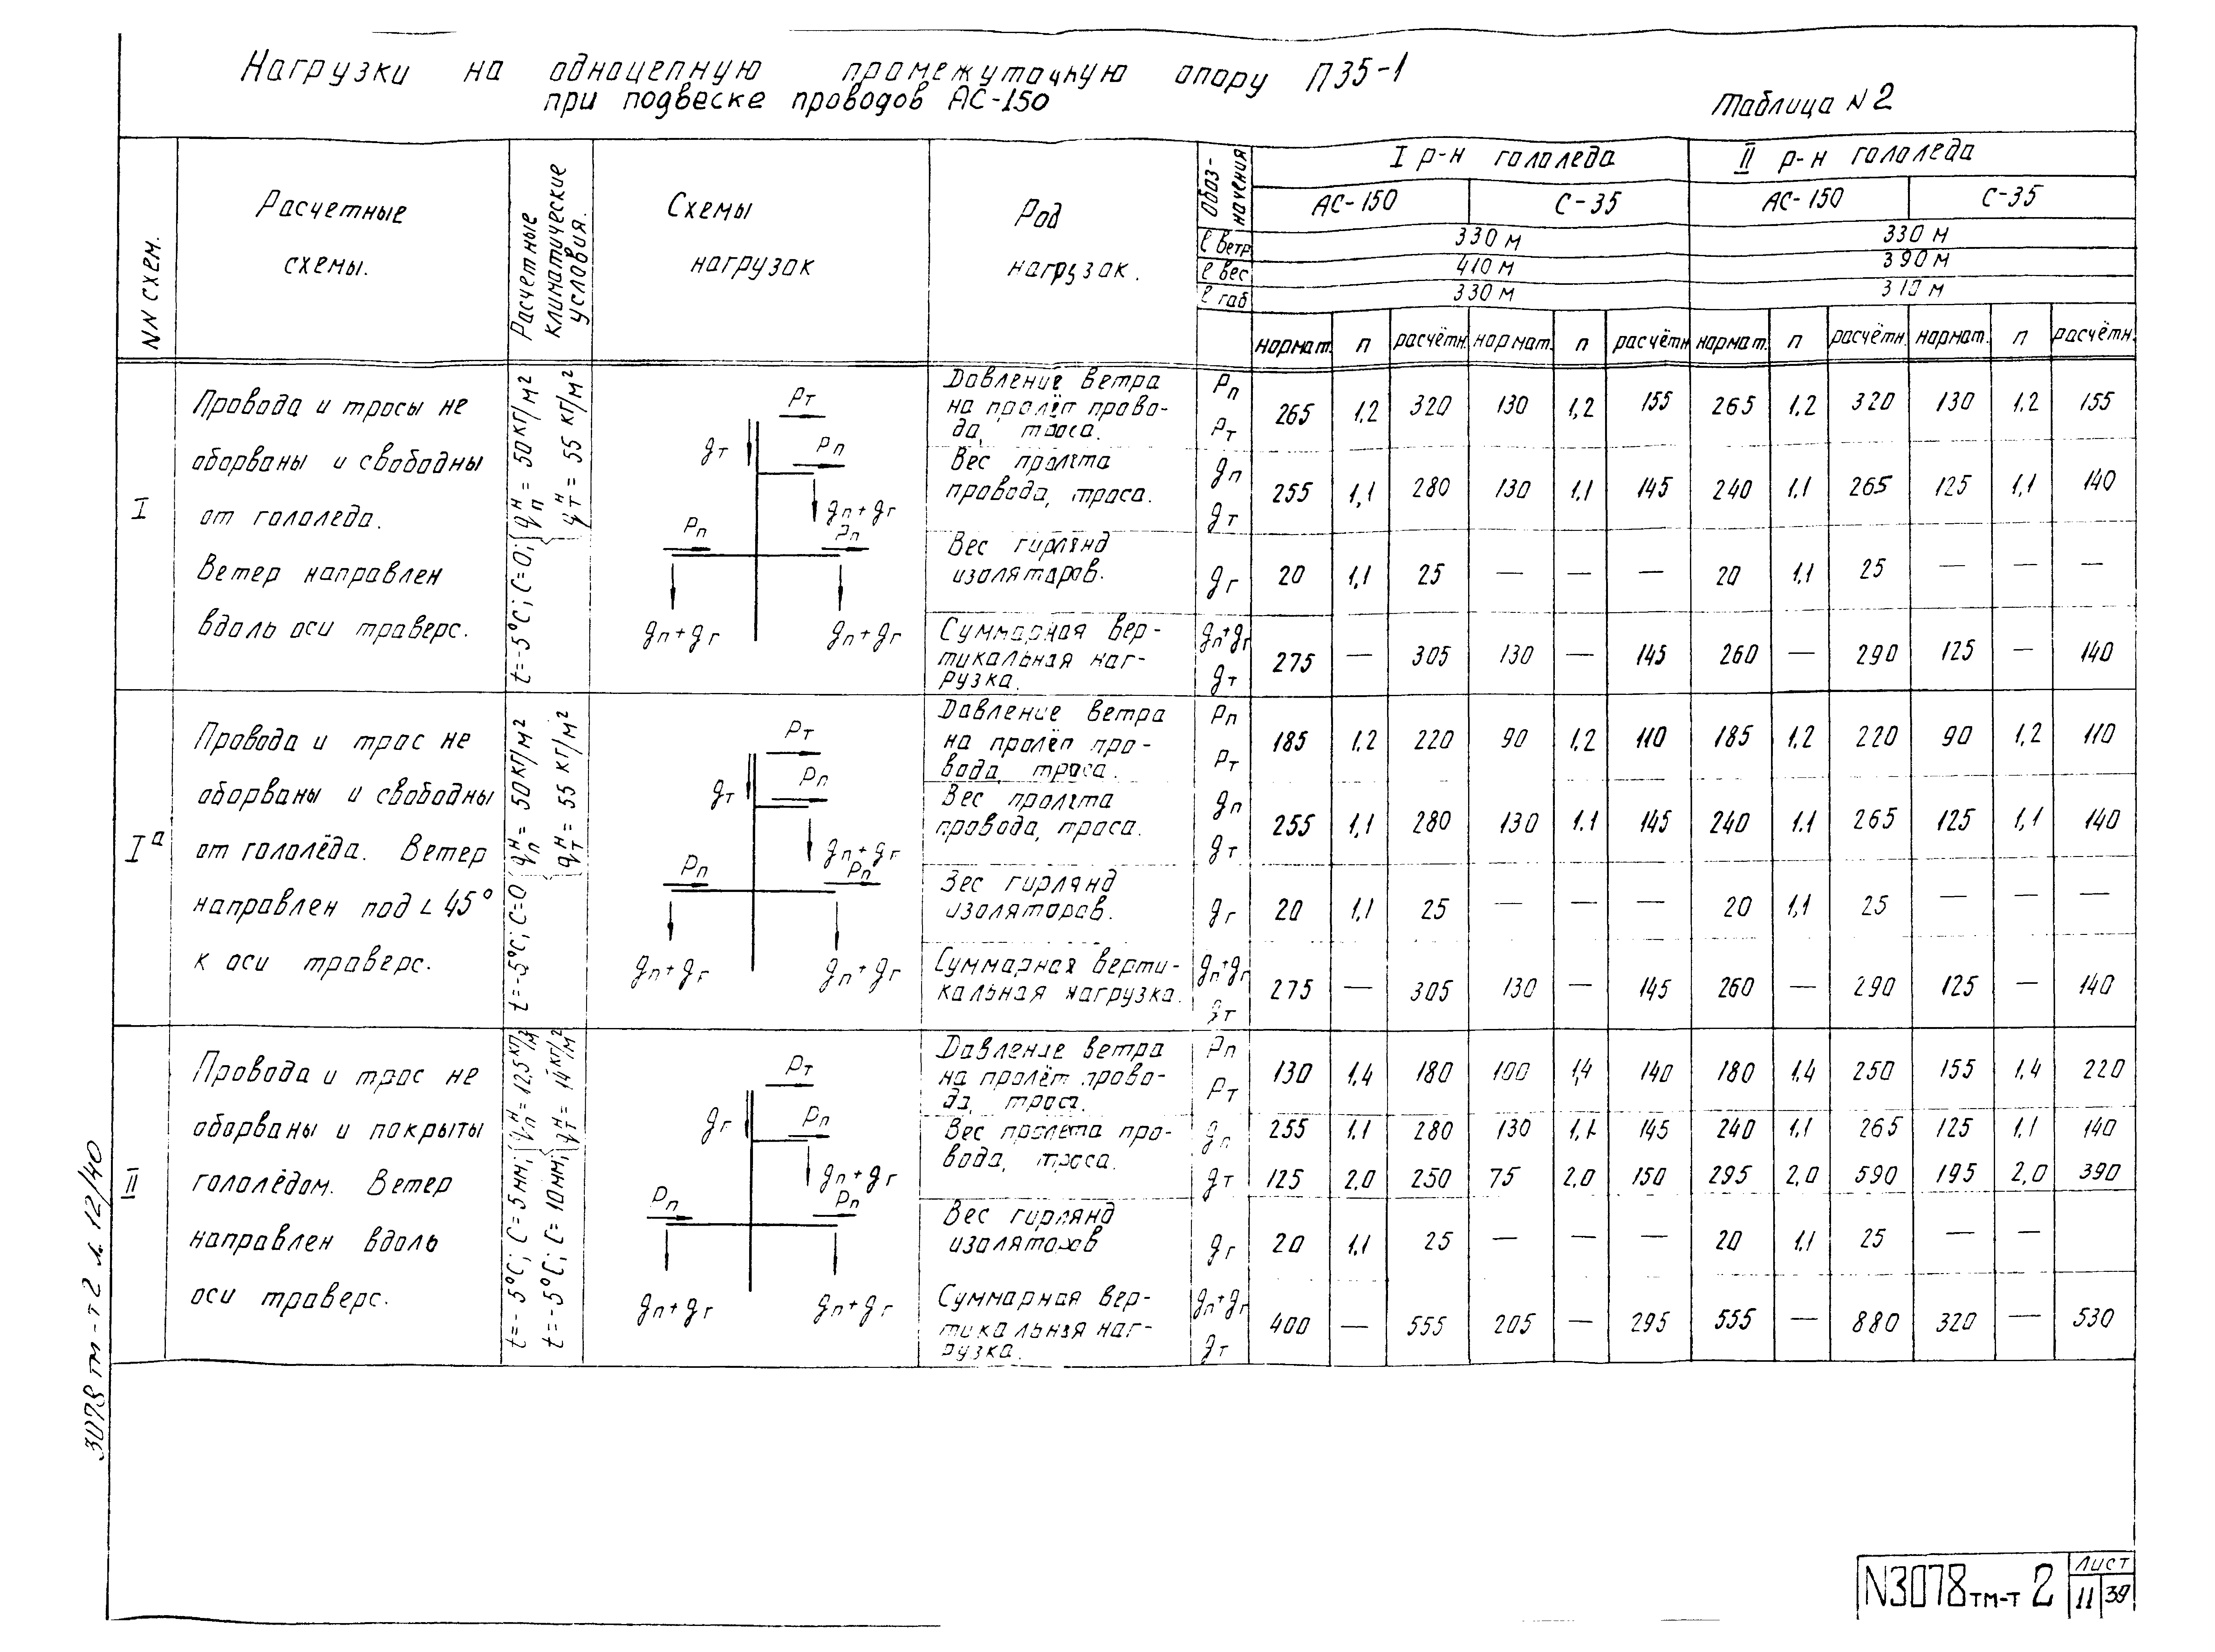 Нагрузки на одноцепную промежуточную опору П35-1
при подвеске проводов АС-150
Таблица N 2
NN схем.
Расчетные
схемы.
Расчетные
климатические
условия.
Схемы
нагрузок
Род
нагрузок.
Обоз-
начения
I р-н гололеда
II р-н гололеда
АС-150 С-35 АС-150 С-35
ℓ ветр 330 м 330 м
ℓ вес 410 м 390 м
ℓ габ 330 м 310 м
нормат. п расчётн. нормат. п расчётн нормат. п расчётн. нормат. п расчётн.
I
Провода и тросы не
оборваны и свободны
от гололеда.
Ветер направлен
вдоль оси траверс.
t=-5°C; C=0; qпн = 50 кг/м²
qтн = 55 кг/м²
Рт
gт
Рп
gп+gг
Рп
Рп
gп+gг
gп+gг
Давление ветра
на пролёт прово-
да, троса.
Рп
Рт
265 1,2 320 130 1,2 155 265 1,2 320 130 1,2 155
Вес пролёта
провода, троса.
gп
gт
255 1,1 280 130 1,1 145 240 1,1 265 125 1,1 140
Вес гирлянд
изоляторов.
gг
20 1,1 25 — — — 20 1,1 25 — — —
Суммарная вер-
тикальная наг-
рузка.
gп+gг
gт
275 — 305 130 — 145 260 — 290 125 — 140
Iа
Провода и трос не
оборваны и свободны
от гололёда. Ветер
направлен под ∠ 45°
к оси траверс.
t=-5°C; C=0 qпн = 50 кг/м²
qтн = 55 кг/м²
Рт
gт
Рп
gп+gг
Рп
Рп
gп+gг
gп+gг
Давление ветра
на пролёт про-
вода, троса.
Рп
Рт
185 1,2 220 90 1,2 110 185 1,2 220 90 1,2 110
Вес пролёта
провода, троса.
gп
gт
255 1,1 280 130 1.1 145 240 1.1 265 125 1,1 140
Вес гирлянд
изоляторов.
gг
20 1,1 25 — — — 20 1,1 25 — — —
Суммарная верти-
кальная нагрузка.
gп+gг
gт
275 — 305 130 — 145 260 — 290 125 — 140
II
Провода и трос не
оборваны и покрыты
гололёдом. Ветер
направлен вдоль
оси траверс.
t=-5°C; C=5мм; qпн = 12,5 кг/м²
t=-5°C; C=10мм; qтн = 14 кг/м²
Рт
gг
Рп
gп+gг
Рп
Рп
gп+gг
gп+gг
Давление ветра
на пролёт прово-
да, троса.
Рп
Рт
130 1,4 180 100 1,4 140 180 1,4 250 155 1,4 220
Вес пролета про-
вода, троса.
gп
255 1,1 280 130 1,1 145 240 1,1 265 125 1,1 140
gт
125 2,0 250 75 2,0 150 295 2,0 590 195 2,0 390
Вес гирлянд
изоляторов
gг
20 1,1 25 — — — 20 1,1 25 — —
Суммарная вер-
тикальная наг-
рузка.
gп+gг
gт
400 — 555 205 — 295 555 — 880 320 — 530
3078 тм-т2 л. 12/40
N3078тм-т 2
Лист
11 39